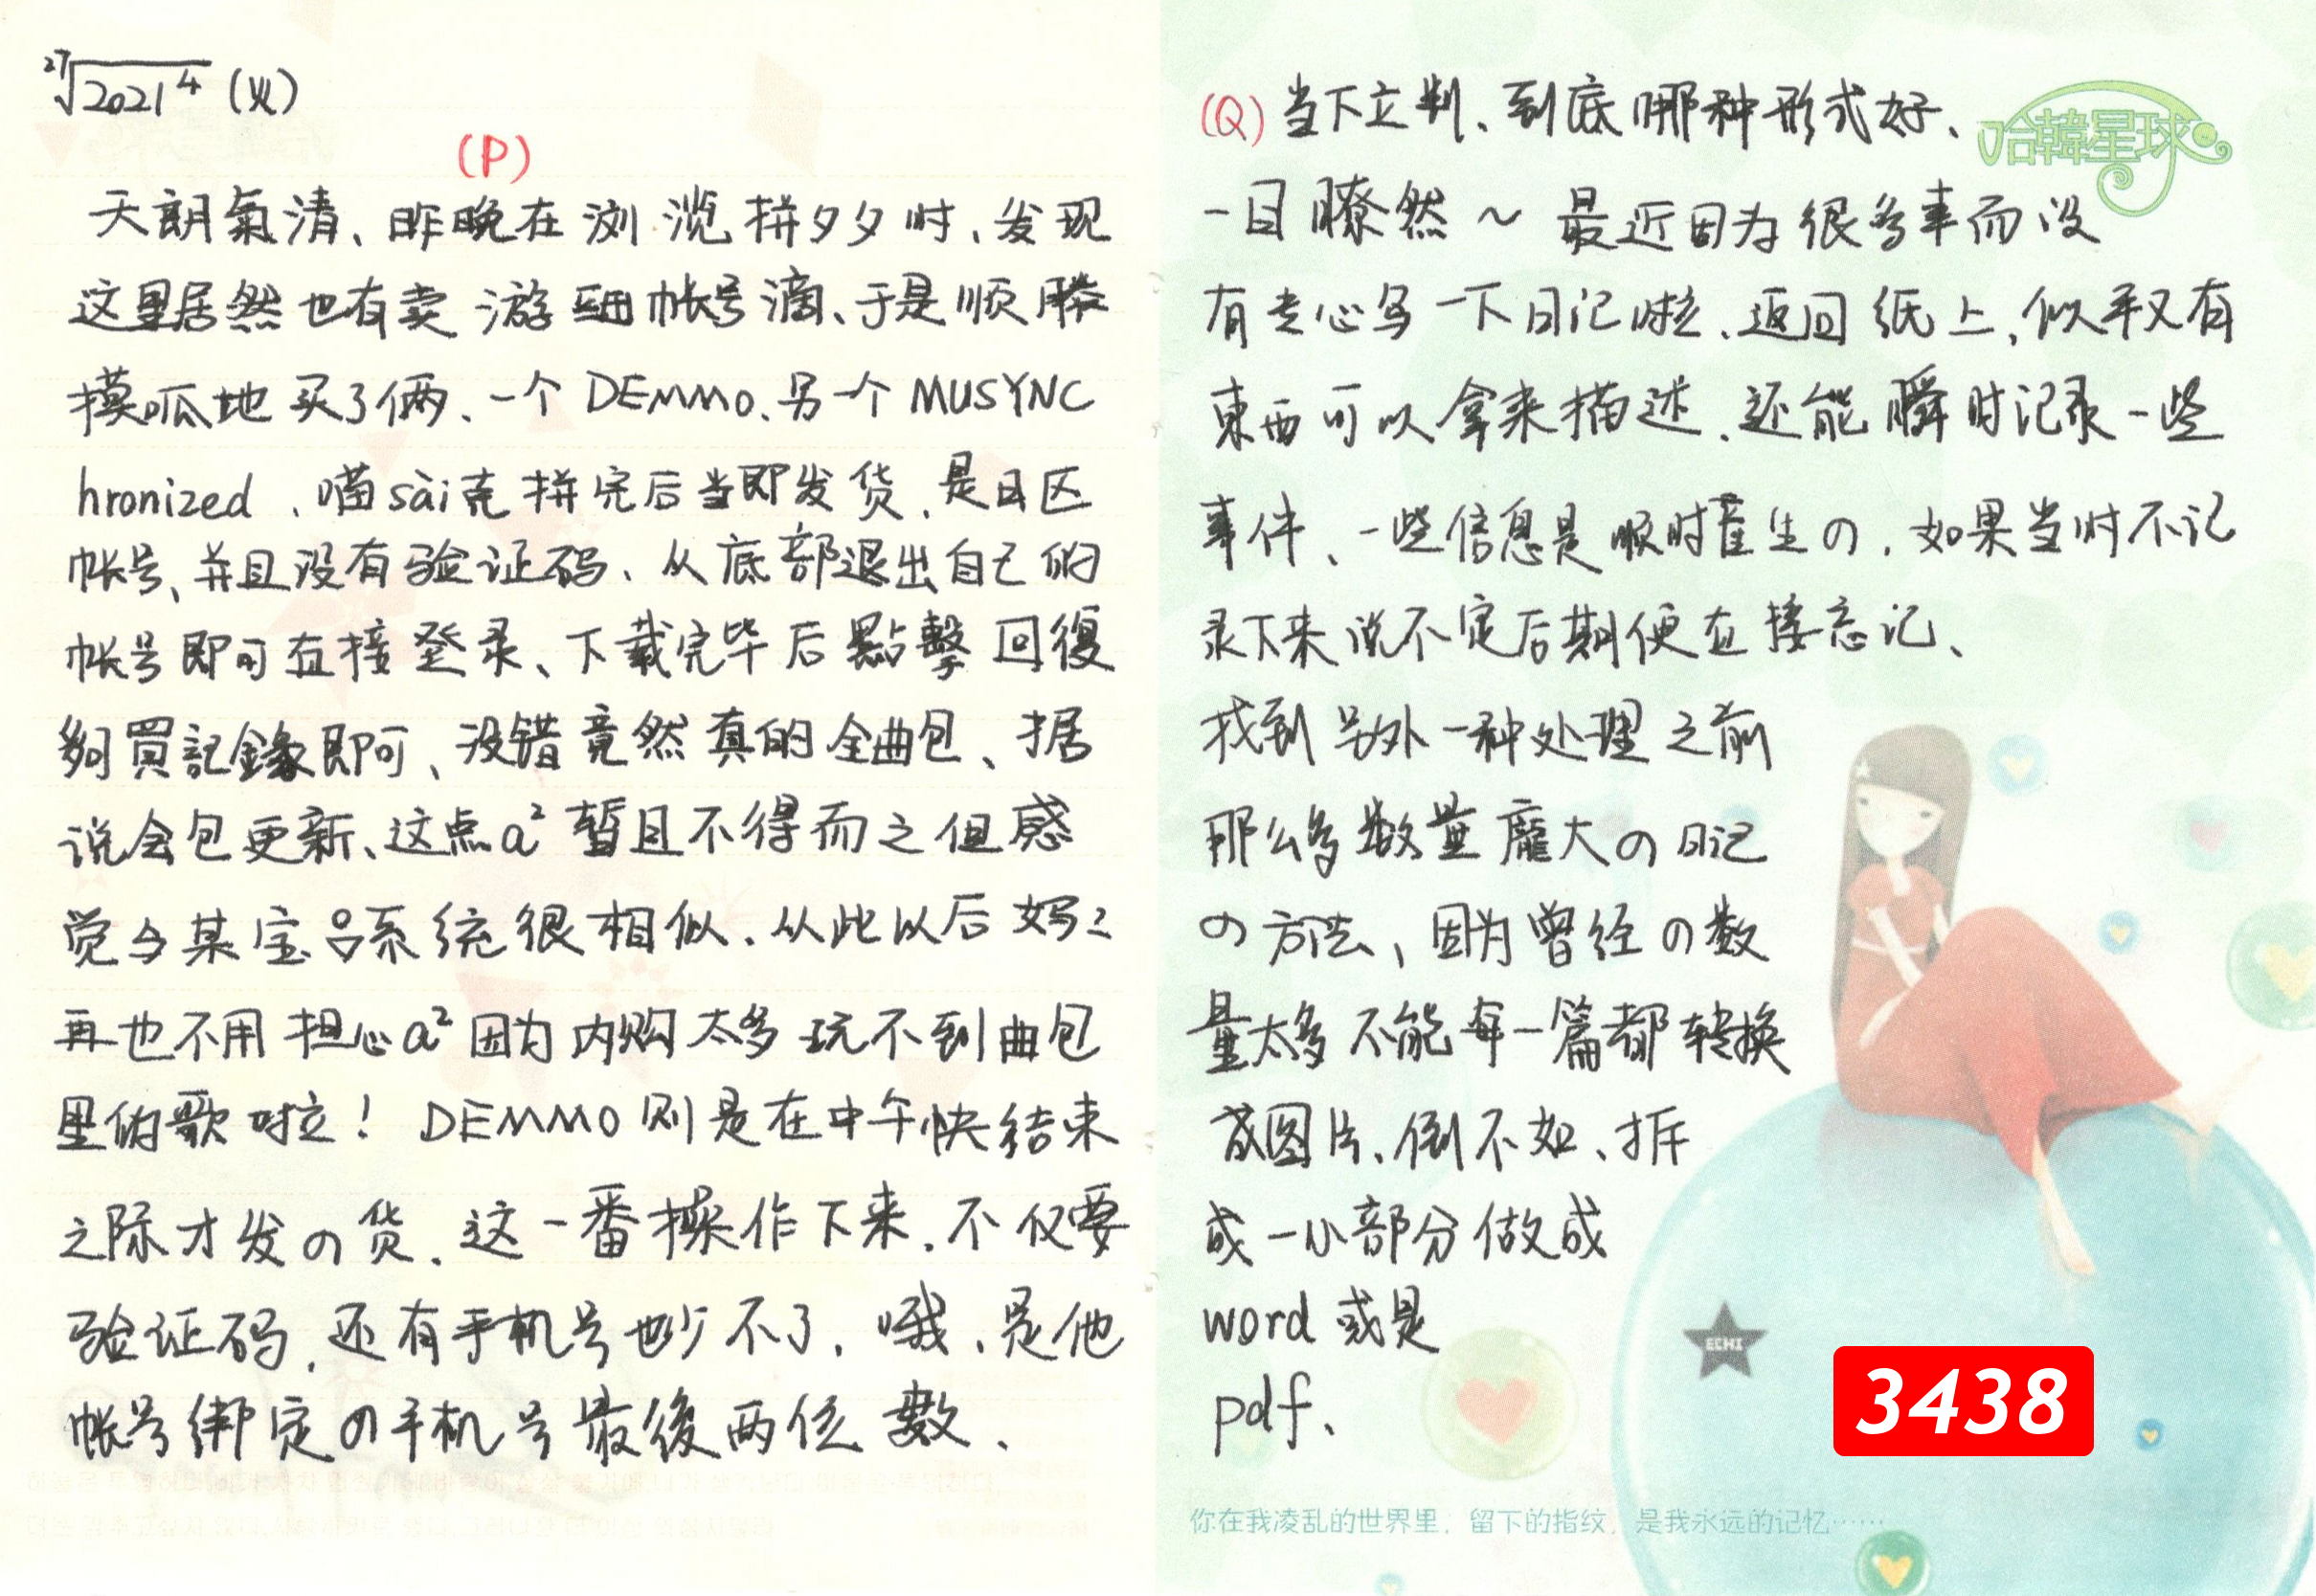 ²⁷√2021⁴ (火)
(P)
天朗氣清、昨晚在浏览拼夕夕时、发现
这里居然也有卖游戏帐号滴、于是顺藤
摸呱地买了俩、一个DEMMO、另一个MUSYNC
hronized、喵sài克拼完后当即发货、是日区
帐号、并且没有验证码、从底部退出自己的
帐号即可直接登录、下载完毕后點擊回復
購買記錄即可、没错竟然真的全曲包、据
说会包更新、这点a²暂且不得而之但感
觉与某宝吕系统很相似、从此以后妈々
再也不用担心a²因为内购太多玩不到曲包
里的歌啦！DEMMO则是在中午快结束
之际才发の货、这一番操作下来、不仅要
验证码、还有手机号也少不了、哦、是他
帐号绑定の手机号最後两位数、
(Q)当下立判、到底哪种形式好、
一目瞭然～最近因为很多事而没
有专心写一下日记啦、返回纸上,似乎又有
東西可以拿来描述、还能瞬时记录一些
事件、一些信息是顺时产生の、如果当时不记
录下来说不定后期便直接忘记、
找到另外一种处理之前
那么多数量龐大の日记
の方法、因为曾经の数
量太多不能每一篇都转换
成图片、倒不如、拆
成一小部分做成
word或是
pdf、
哈韓星球
ECHI
3438
你在我凌乱的世界里；留下的指纹，是我永远的记忆……